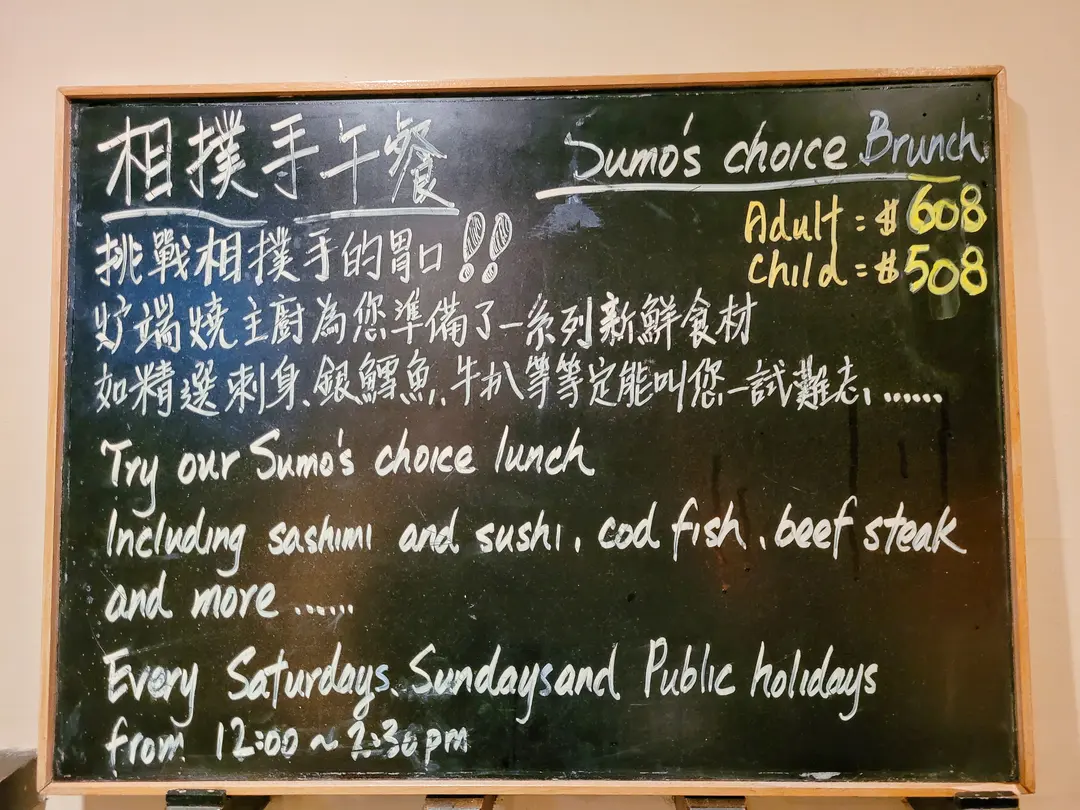 相撲手午餐
Sumo's choice Brunch
Adult = $608
Child = $508
挑戰相撲手的胃口!!
炉端燒主廚為您準備了一系列新鮮食材
如精選刺身、銀鱈魚、牛扒等等定能叫您一試難忘、......
Try our Sumo's choice lunch
Including sashimi and sushi, cod fish, beef steak
and more ......
Every Saturdays, Sundays and Public holidays
from 12:00 ~ 2:30pm